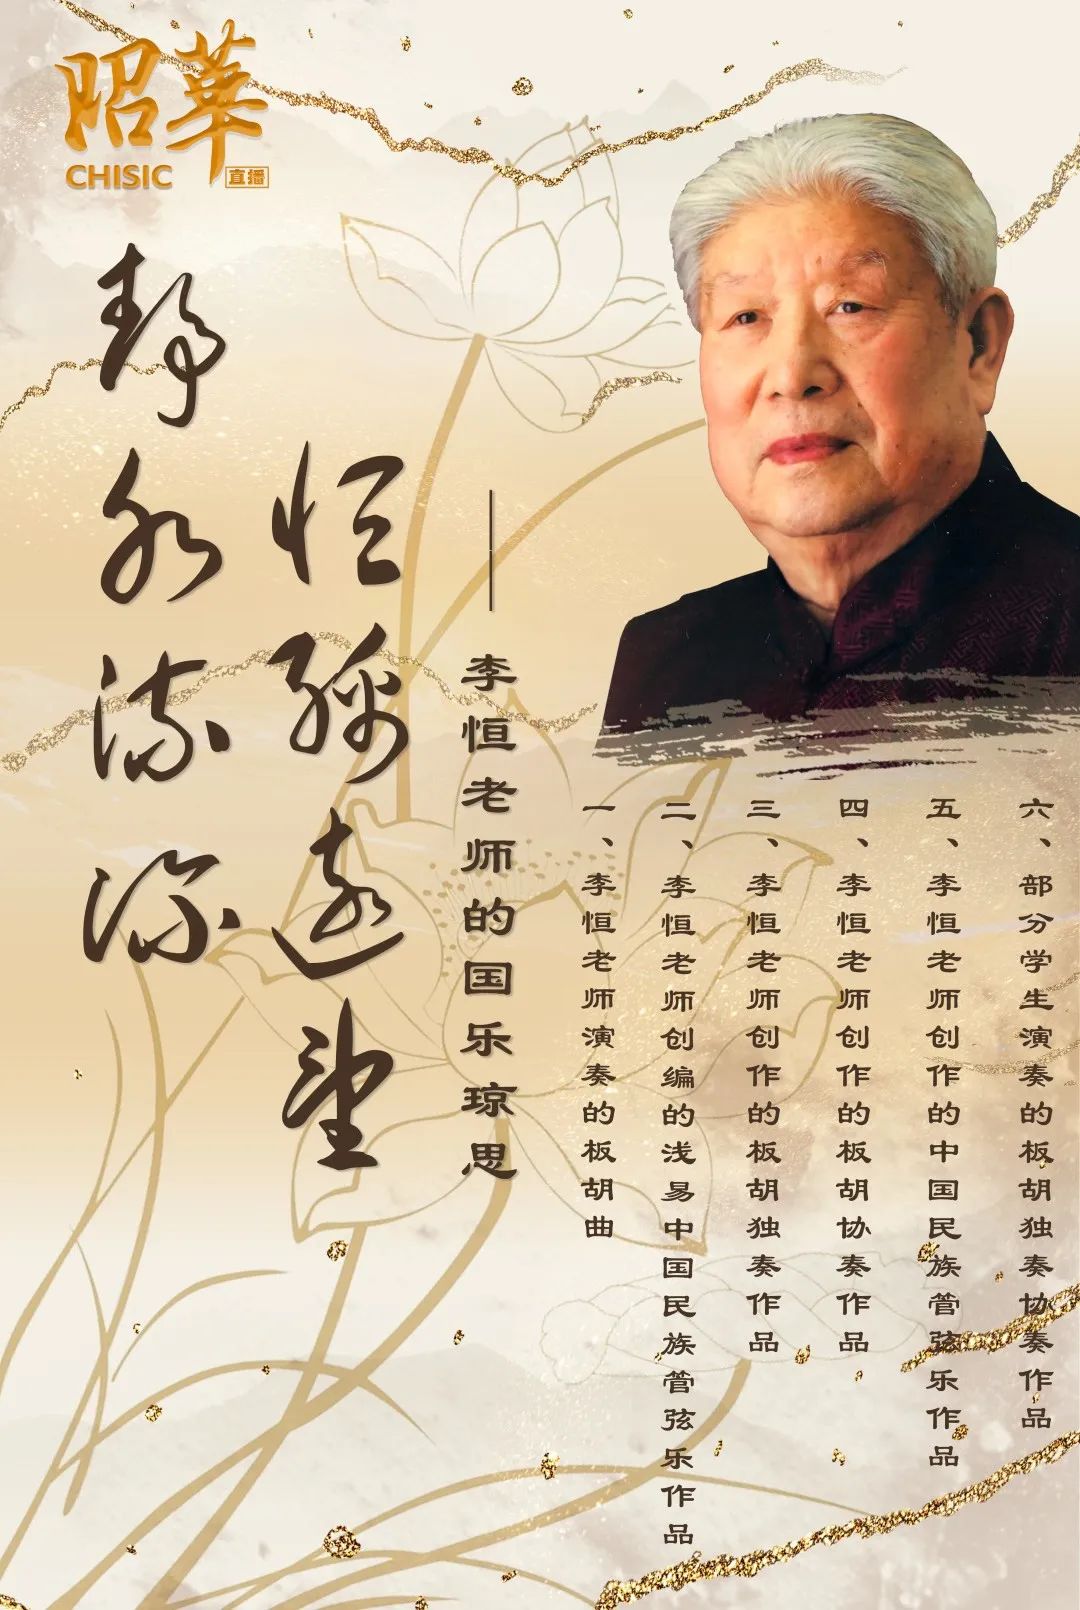 昭華
CHISIC
直播
静水流深
恒远望
——李恒老师的国乐琼思
一、李恒老师演奏的板胡曲
二、李恒老师创编的浅易中国民族管弦乐作品
三、李恒老师创作的板胡独奏作品
四、李恒老师创作的板胡协奏作品
五、李恒老师创作的中国民族管弦乐作品
六、部分学生演奏的板胡独奏协奏作品